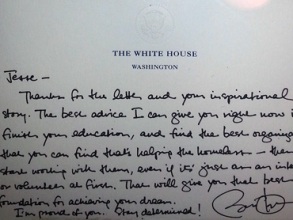 THE WHITE HOUSE
WASHINGTON
Jesse —
Thanks for the letter and your inspirational
story. The best advice I can give you right now i
finish your education, and find the best organiza
that you can find that's helping the homeless — then
start working with them, even if it's just as an inte
or volunteer at first. That will give you that best
foundation for achieving your dream.
I'm proud of you. Stay determined!